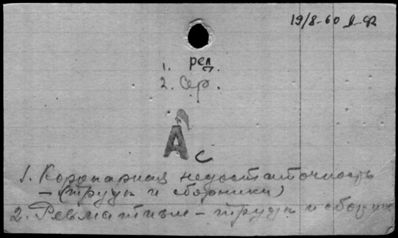 19/8-60
1. рел.
2. Ср.
А с
1. Коронарная недостаточность
– (труды и сборники)
2. Ревматизм – труды и сборник